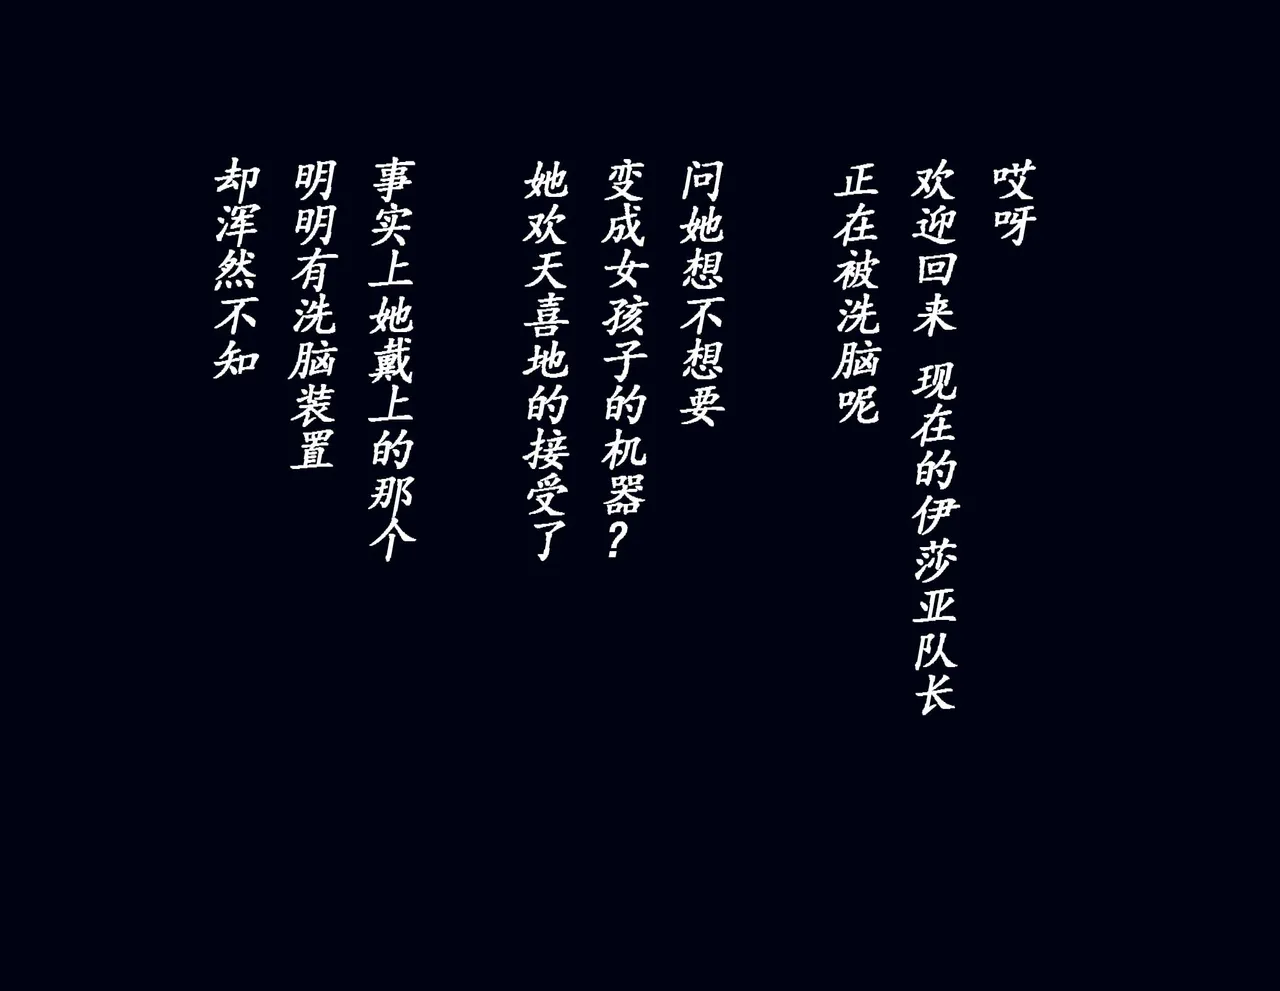 哎呀
欢迎回来 现在的伊莎亚队长
正在被洗脑呢
问她想不想要
变成女孩子的机器?
她欢天喜地的接受了
事实上她戴上的那个
明明有洗脑装置
却浑然不知